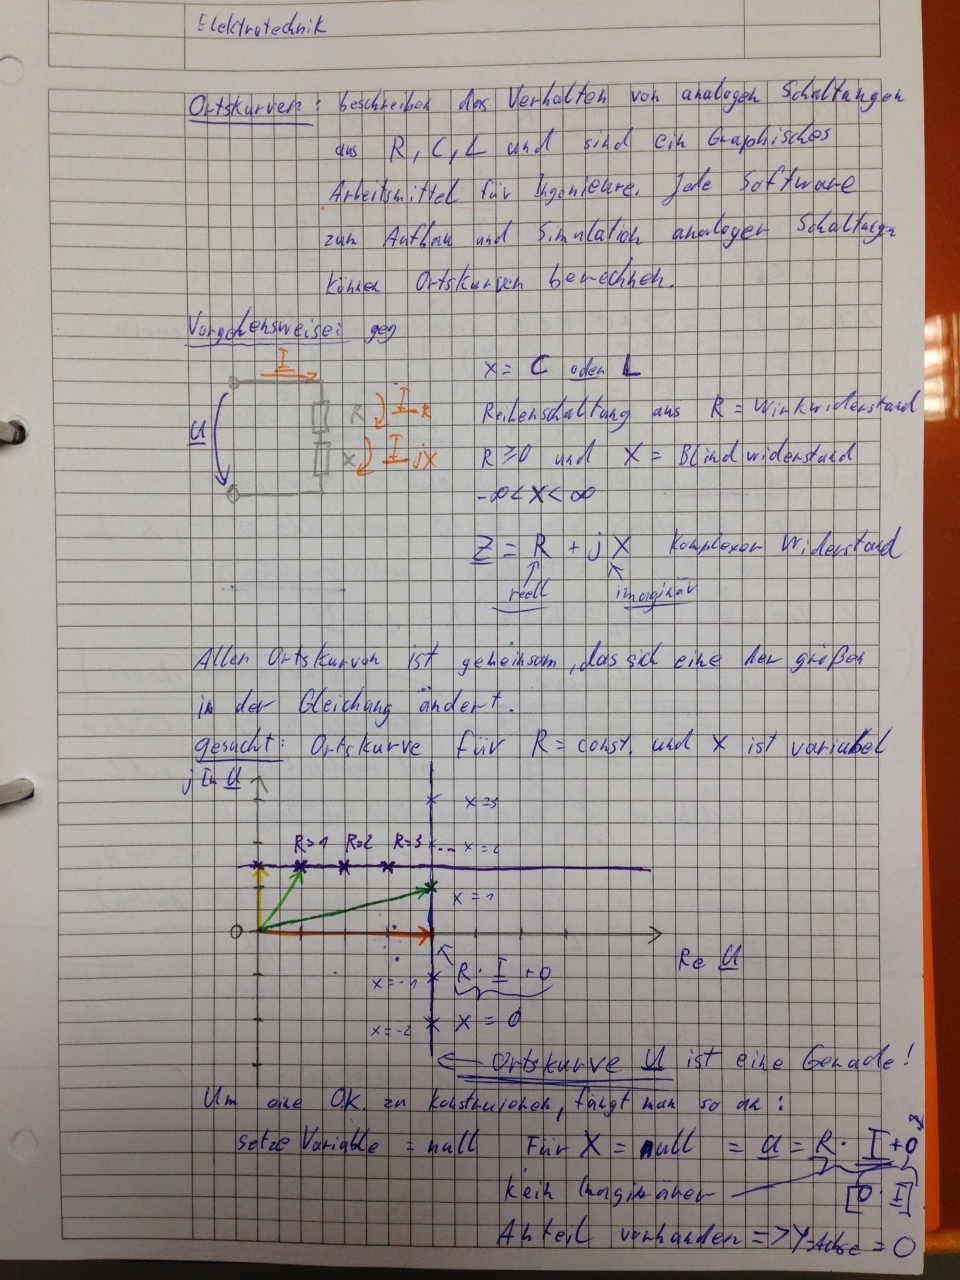 Elektrotechnik
Ortskurven: beschreiben das Verhalten von analogen Schaltungen
aus R, C, L und sind ein Graphisches
Arbeitsmittel für Ingenieure. Jede Software
zum Aufbau und Simulation analoger Schaltungen
können Ortskurven berechnen.
Vorgehensweise: geg
I
U
R I R
X I jX
x = C oder L
Reihenschaltung aus R = Wirkwiderstand
R ≥ 0 und X = Blindwiderstand
-∞ < X < ∞
Z = R + j X Komplexer Widerstand
reell imaginär
Allen Ortskurven ist gemeinsam, das sich eine der größen
in der Gleichung ändert.
gesucht: Ortskurve für R = const. und x ist variabel
j Im U
x=3
R=1 R=2 R=3 ... x=2
x=1
0
Re U
R · I + 0
x=-1
x=-2 x = 0
← Ortskurve U ist eine Gerade!
Um eine O.K. zu konstruieren, fängt man so an:
setze Variable = null Für X = null = U = R · I + 0
kein Imaginärer [0 · I]
Anteil vorhanden => Y-Achse = 0